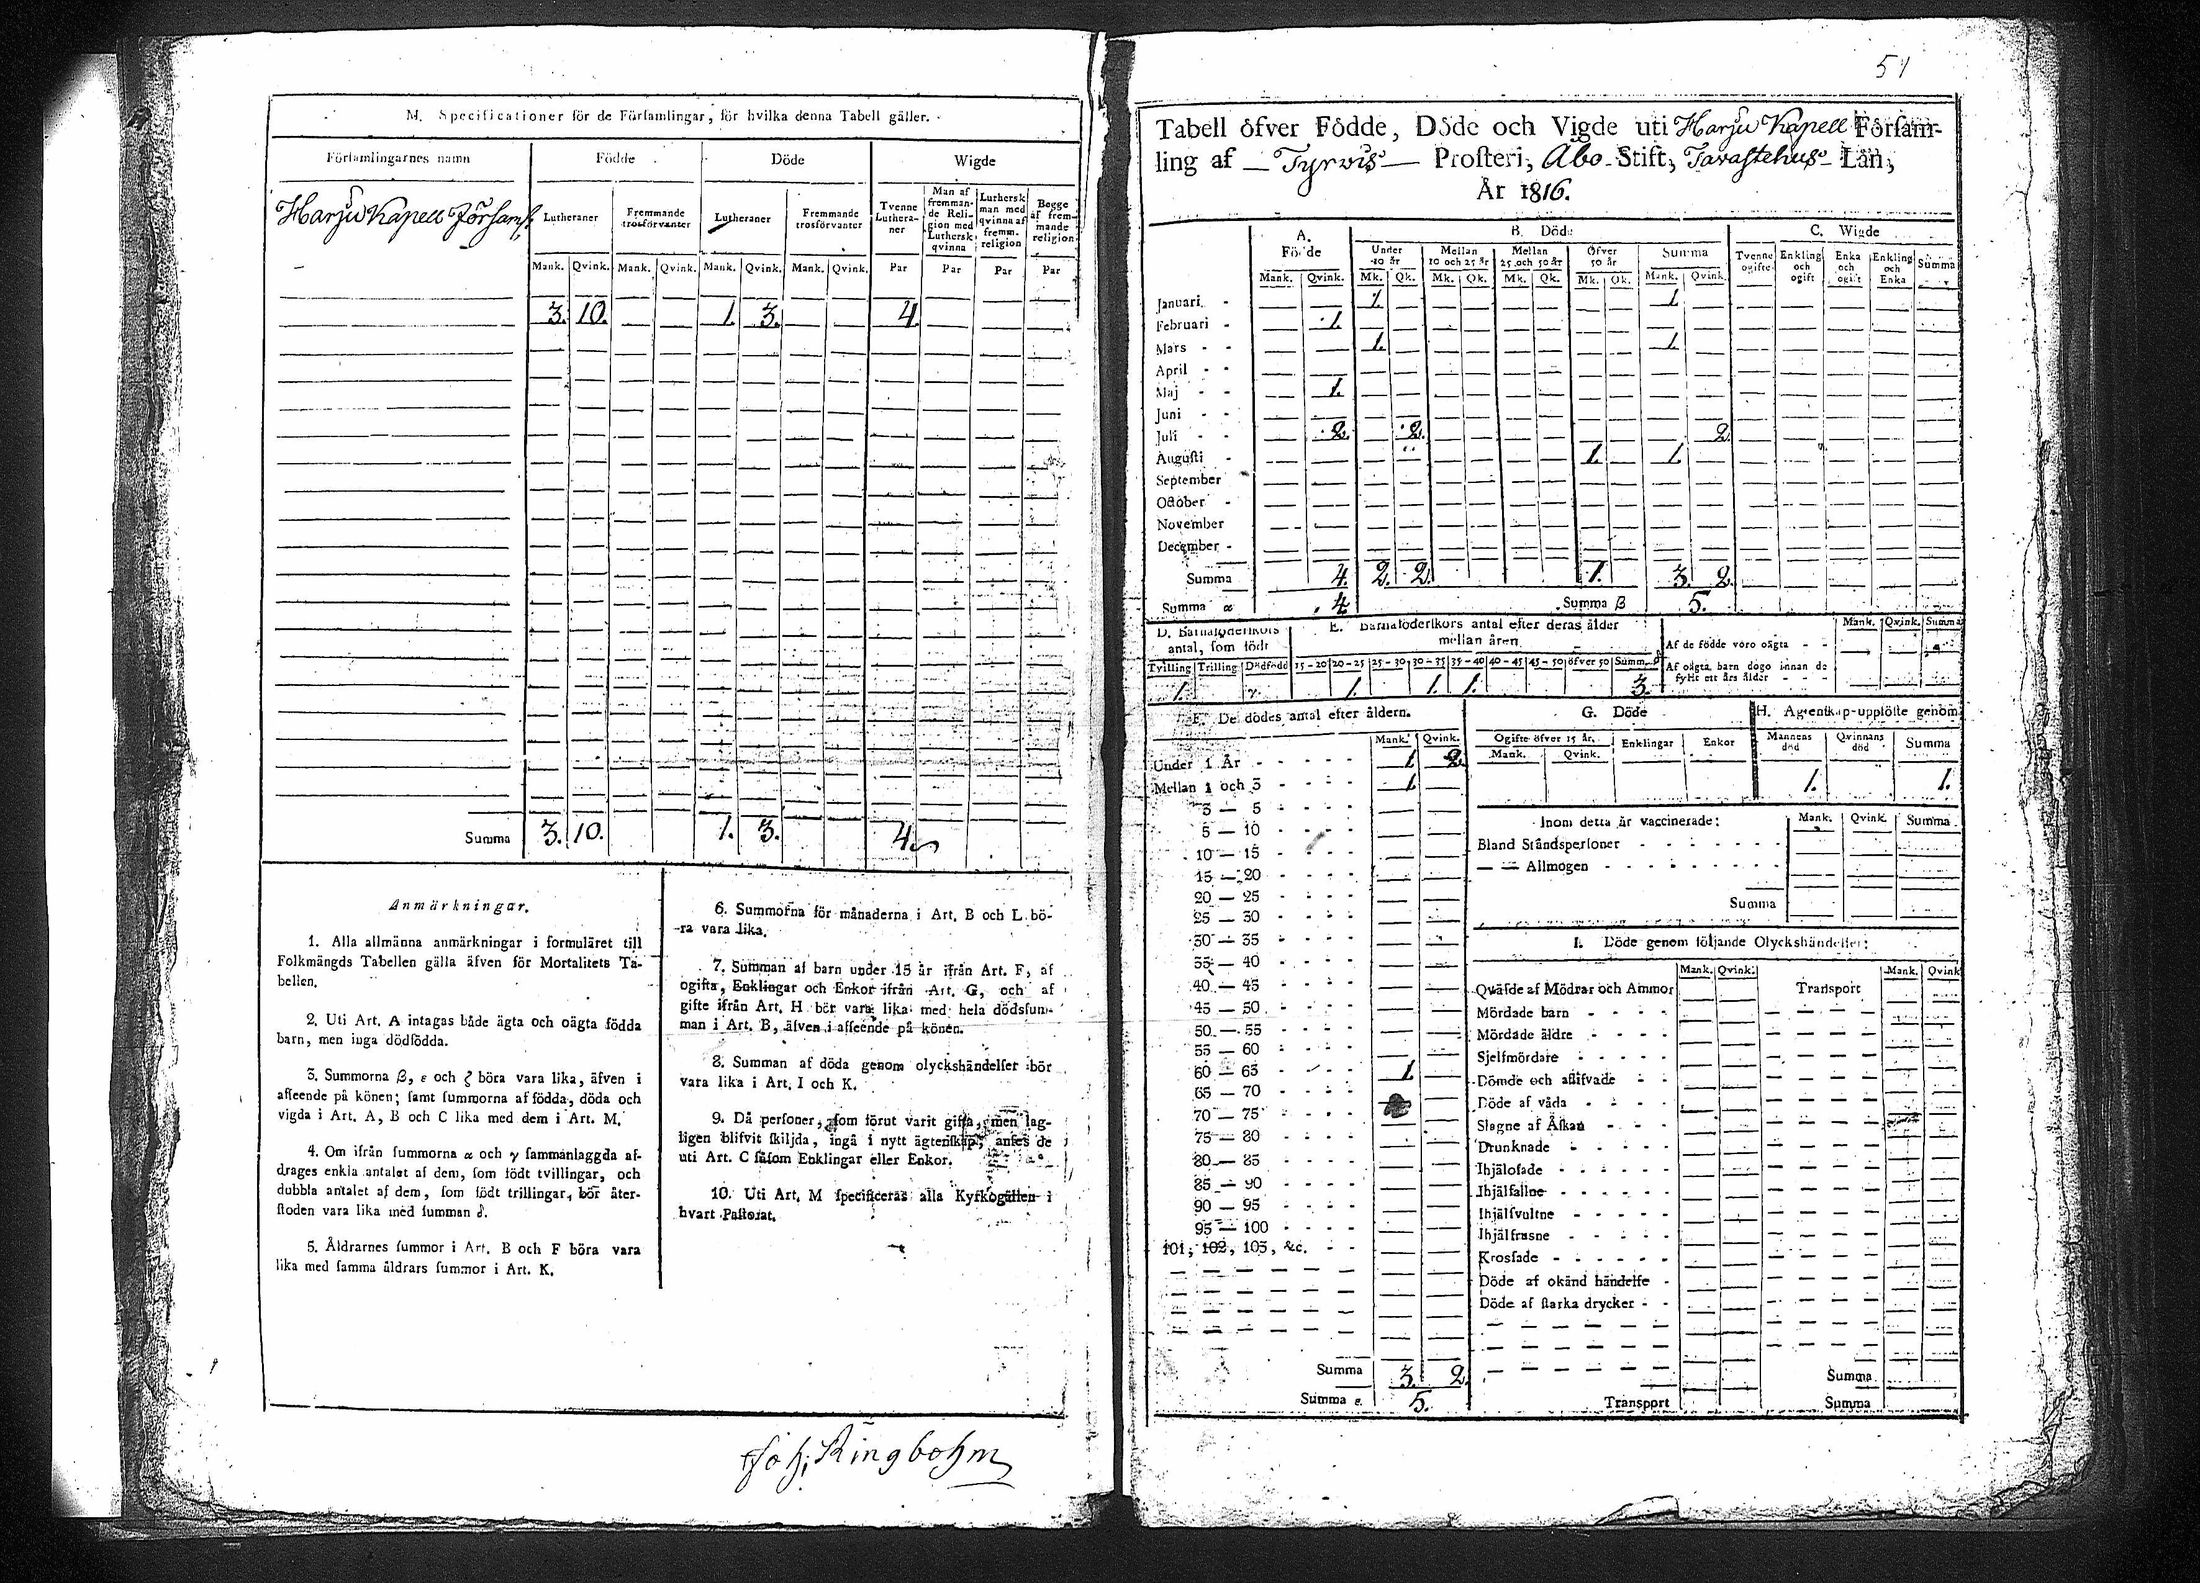 M. Specificationer för de Församlingar, för hvilka denna Tabell gäller.
Församlingarnes namn Födde Döde Wigde
Lutheraner Fremmande trosförvanter Lutheraner Fremmande trosförvanter Tvenne Lutheraner Man af fremmande Religion med Luthersk qvinna Luthersk man med qvinna af fremm. religion Begge af fremmande religion
Mank. Qvink. Mank. Qvink. Mank. Qvink. Mank. Qvink. Par Par Par Par
Harju Kapell Församl.
3. 10. 1. 3. 4.
Summa 3. 10. 1. 3. 4.
Anmärkningar.
1. Alla allmänna anmärkningar i formuläret till
Folkmängds Tabellen gälla äfven för Mortalitets Ta-
bellen.
2. Uti Art. A intagas både ägta och oägta födda
barn, men inga dödfödda.
3. Summorna β, ε och ζ böra vara lika, äfven i
affeende på könen; samt summorna af födda, döda och
vigda i Art. A, B och C lika med dem i Art. M.
4. Om ifrån summorna α och γ sammanlaggda af-
drages enkla antalet af dem, som födt tvillingar, och
dubbla antalet af dem, som födt trillingar, bör åter-
stoden vara lika med summan δ.
5. Åldrarnes summor i Art. B och F böra vara
lika med samma åldrars summor i Art. K.
6. Summorna för månaderna i Art. B och L bö-
ra vara lika.
7. Summan af barn under 15 år ifrån Art. F, af
ogifta, Enklingar och Enkor ifrån Art. G, och af
gifte ifrån Art. H bör vara lika med hela dödssum-
man i Art. B, äfven i affeende på könen.
8. Summan af döda genom olyckshändelser bör
vara lika i Art. I och K.
9. Då personer, som förut varit gifta, men lag-
ligen blifvit skiljda, ingå i nytt ägtenskap, anses de
uti Art. C såsom Enklingar eller Enkor.
10. Uti Art. M specificeras alla Kyrkogällen i
hvart Pastorat.
Joh. Ringbohm
51
Tabell öfver Födde, Döde och Vigde uti Harju Kapell Försam-
ling af Tyrvis Prosteri, Åbo Stift, Tavastehus Län,
År 1816.
A. Födde B. Döde C. Wigde
Under 10 år Mellan 10 och 25 år Mellan 25 och 50 år Öfver 50 år Summa Tvenne ogifte Enkling och ogift Enka och ogift Enkling och Enka Summa
Mank. Qvink. Mk. Qk. Mk. Qk. Mk. Qk. Mk. Qk. Mank. Qvink.
Januari 1. 1.
Februari 1.
Mars 1. 1.
April
Maj 1.
Juni
Juli 2. 2. 2.
Augusti 1. 1.
September
October
November
December
Summa 4. 2. 2. 1. 3. 2.
Summa α 4. Summa β 5.
D. Barnaföderskors antal, som födt
E. Barnaföderskors antal efter deras ålder mellan åren
Mank. Qvink. Summa
Tvilling Trilling Dödfödd 15-20 20-25 25-30 30-35 35-40 40-45 45-50 öfver 50 Summ. δ
Af de födde voro oägta
Af oägta barn dogo innan de fyllt ett års ålder
1. 1. 1. 1. 3.
F. De dödes antal efter åldern.
Mank. Qvink.
Under 1 År 1 2.
Mellan 1 och 3 1.
3 — 5
5 — 10
10 — 15
15 — 20
20 — 25
25 — 30
30 — 35
35 — 40
40 — 45
45 — 50
50 — 55
55 — 60
60 — 65 1
65 — 70
70 — 75
75 — 80
80 — 85
85 — 90
90 — 95
95 — 100
101, 102, 103, &c.
Summa 3. 2.
Summa ε. 5.
G. Döde
Ogifte öfver 15 år. Enklingar Enkor
Mank. Qvink.
H. Ägtenskap upplöste genom
Mannens död Qvinnans död Summa
1. 1.
Inom detta år vaccinerade: Mank. Qvink. Summa
Bland Ståndspersoner
— — Allmogen
Summa
I. Döde genom följande Olyckshändelser:
Mank. Qvink. Mank. Qvink
Qväfde af Mödrar och Ammor Transport
Mördade barn
Mördade äldre
Sjelfmördare
Dömde och aflifvade
Döde af våda
Slagne af Åskan
Drunknade
Ihjälosade
Ihjälfallne
Ihjälsvultne
Ihjälfrusne
Krossade
Döde af okänd händelse
Döde af starka drycker
Summa
Transport Summa